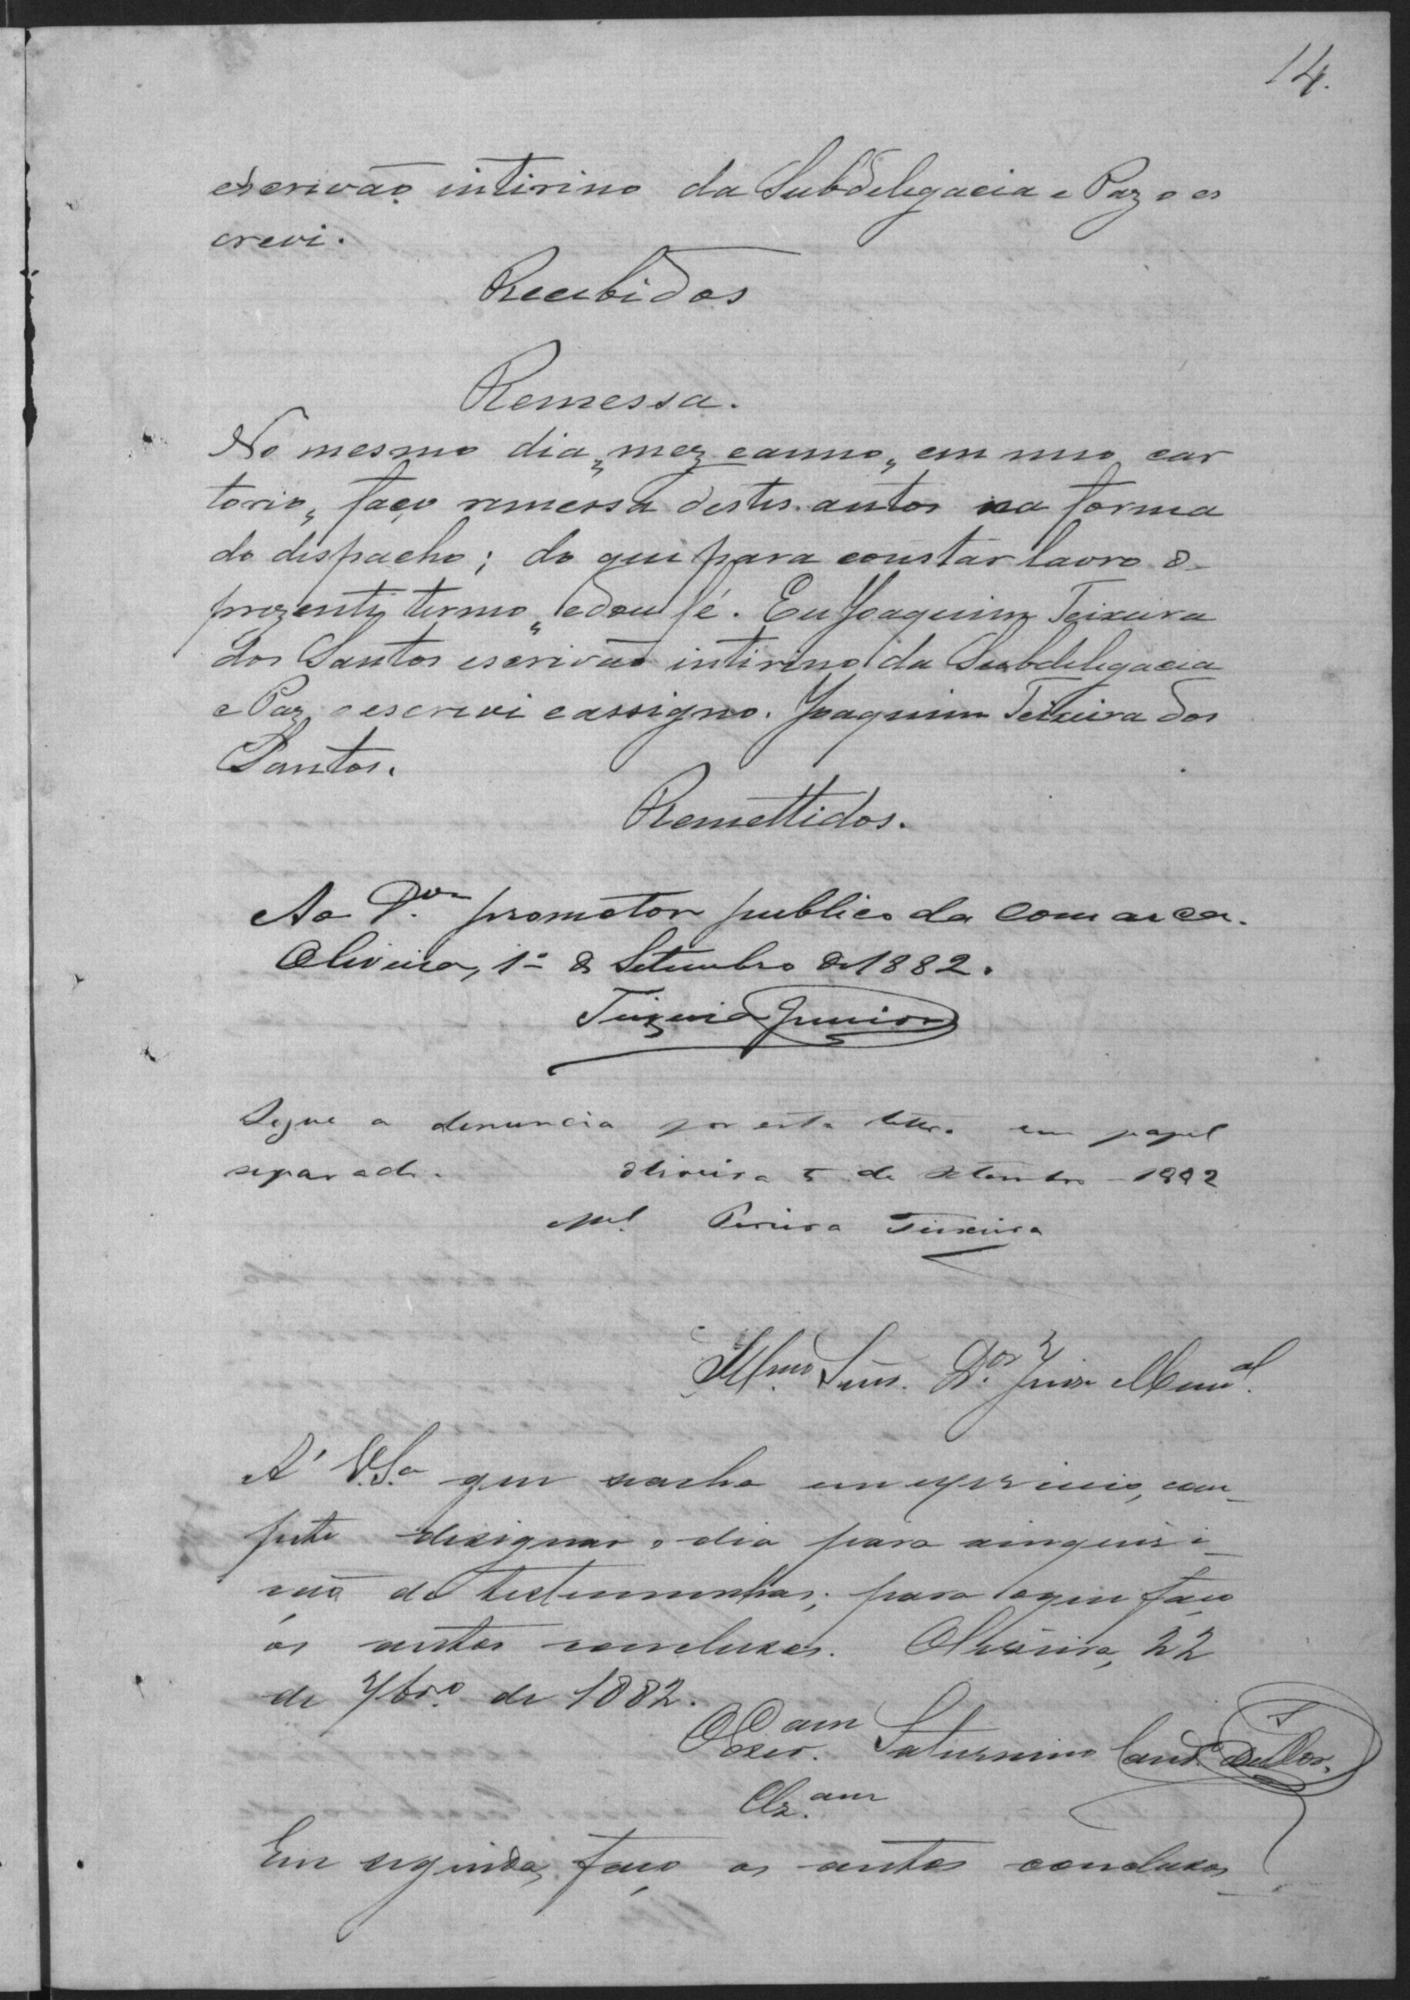 14.
escrivão intirino da Subdelegacia e Paz o es
crevi.
Recebidos
Remessa.
No mesmo dia, mez eanno, em meo car
torio, faço remessa destes autos na forma
do dispacho; do que para constar lavro o
prezente termo, edou fé. Eu Joaquim Teixeira
dos Santos escrivão intirino da Subdelegacia
e Paz o escrevi eassigno. Joaquim Teixeira dos
Santos.
Remettidos.
Ao Dor. promotor publico da comarca.
Oliveira, 1º de Setembro de 1882.
Teixeira Junior
Segue a denuncia por esta lettra em papel
separado. Oliveira 5 de Setembro 1882
Mel. Pereira Teixeira
Illmo. Snr. Dor. Juiz Munal.
A' V.Sa. que seacha em exercicio, com-
pete designar o dia para ainquiri-
ção de testemunhas; para oque faço
os autos conclusos. Oliveira, 22
de 7bro. de 1882.
O Escram. Saturnino Cand.
Clzam
Em seguida, faço os autos conclusos